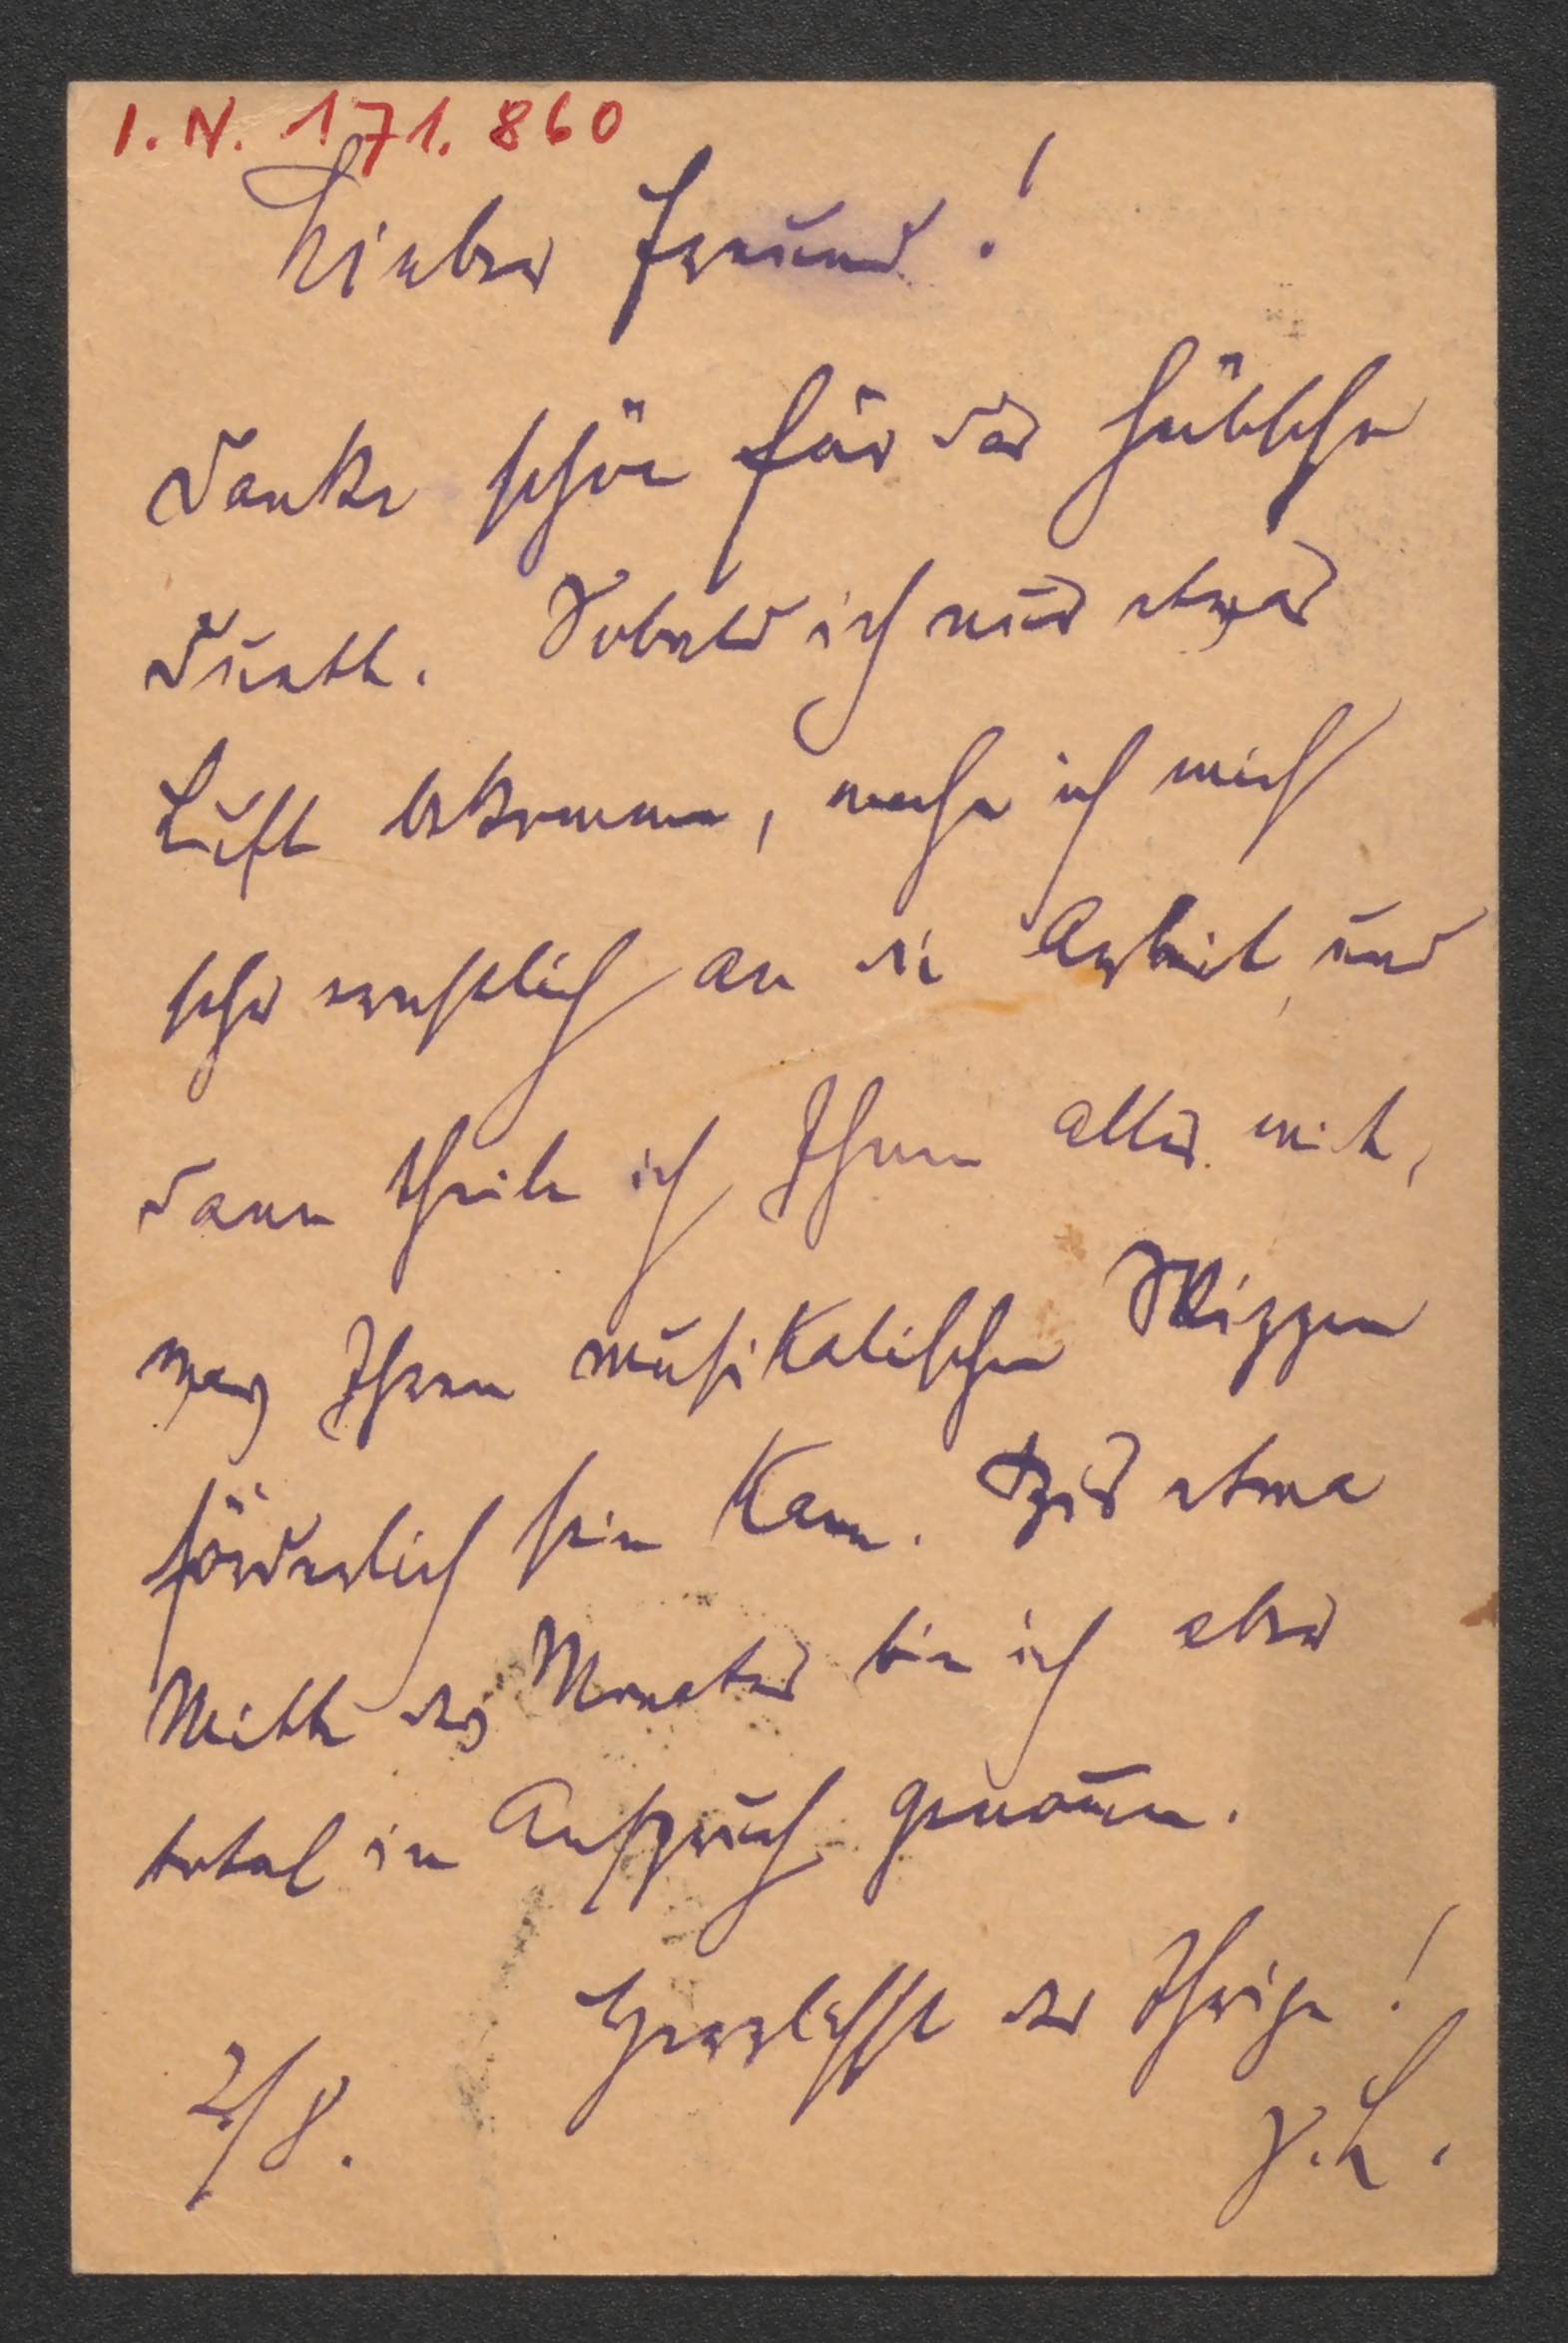 I.N. 171.860
Lieber Freund!
Danke schön für das hübsche
Duett. Sobald ich nur etwas
Luft bekomme, mache ich mich
sehr ernstlich an die Arbeit, und
dann theile ich Ihnen alles mit,
was Ihren musikalischen Skizzen
förderlich sein kann. Bis etwa
Mitte des Monates bin ich aber
total in Anspruch genom̅en.
Herzlichst der Ihrige!
2/8.
J. L.